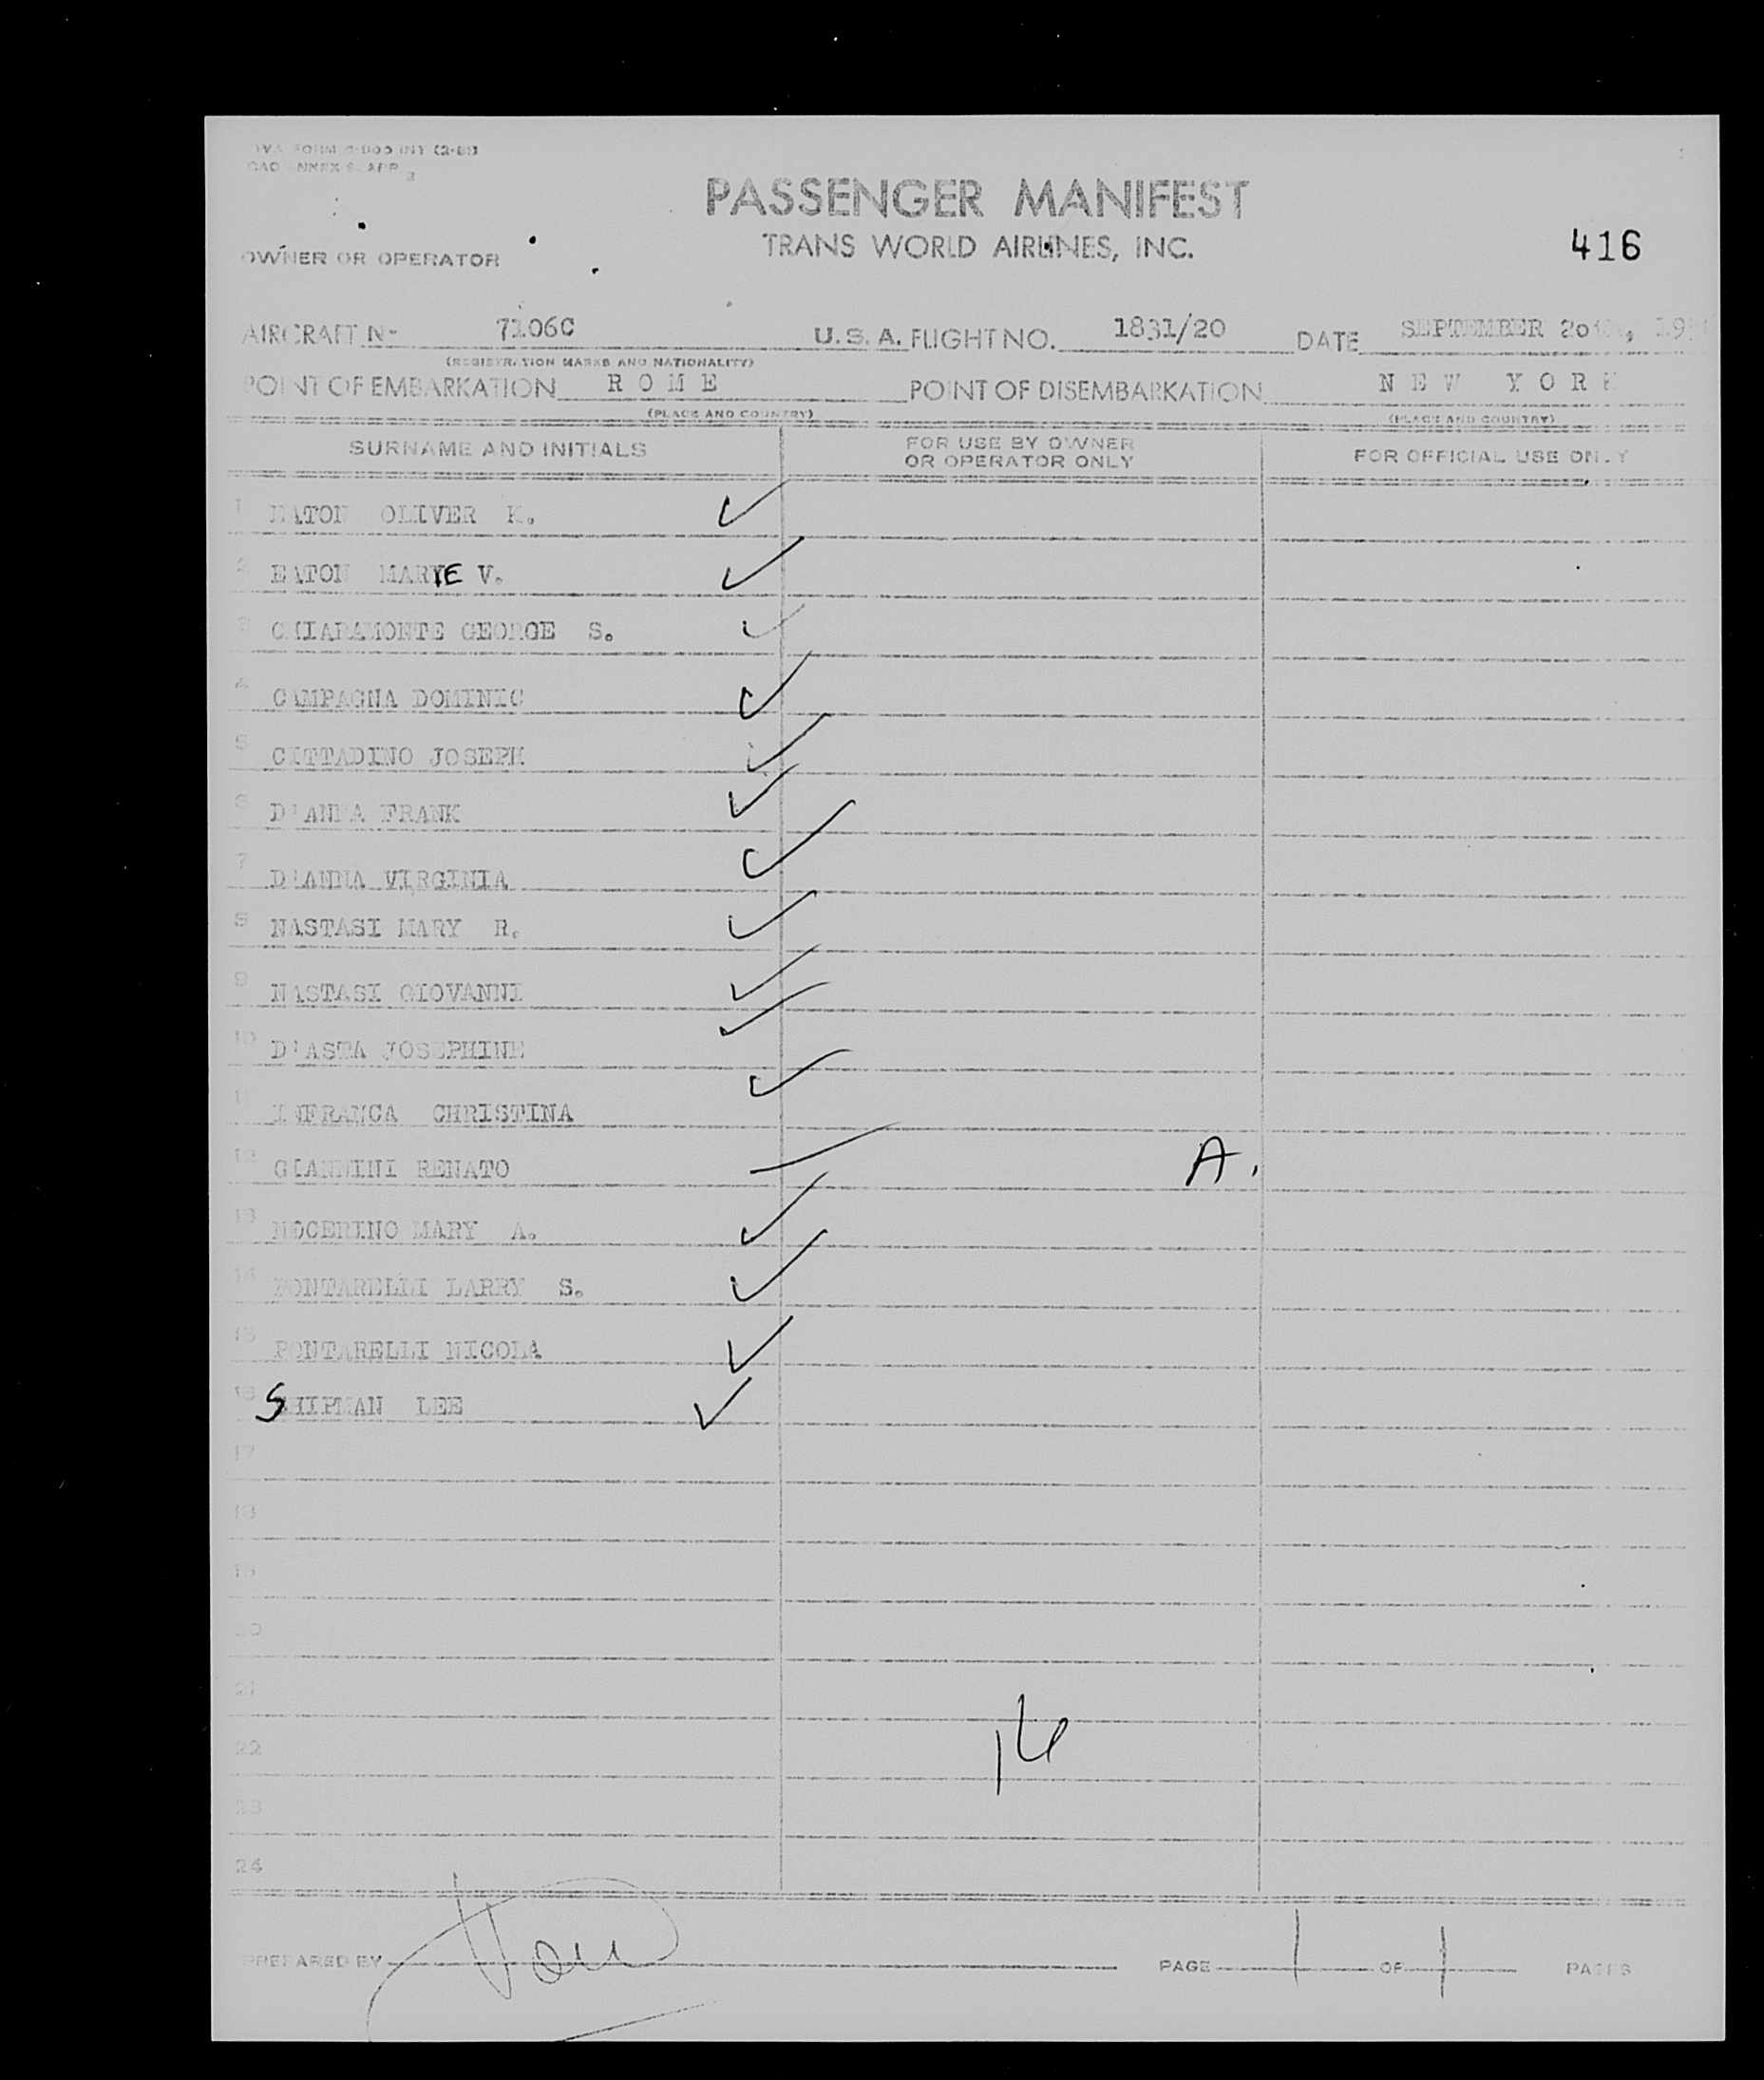 PASSENGER MANIFEST
416
TRANS WORLD AIRLINES, INC.
OWNER OR OPERATOR
AIRCRAFT No 7106C U. S. A. FLIGHT NO. 1831/20 DATE SEPTEMBER 20
(REGISTRATION MARKS AND NATIONALITY)
POINT OF EMBARKATION ROME POINT OF DISEMBARKATION NEW YORK
(PLACE AND COUNTRY) (PLACE AND COUNTRY)
SURNAME AND INITIALS FOR USE BY OWNER OR OPERATOR ONLY FOR OFFICIAL USE ONLY
1 EATON OLIVER K. ✓
2 EATON MARIE V. ✓
3 CHIARAMONTE GEORGE S. ✓
4 CAMPAGNA DOMINIC ✓
5 CITTADINO JOSEPH ✓
6 D'ANNA FRANK ✓
7 D'ANNA VIRGINIA ✓
8 NASTASI MARY R. ✓
9 NASTASI GIOVANNI ✓
10 D'ASTA JOSEPHINE ✓
11 INFRANCA CHRISTINA ✓
12 GIANNINI RENATO A.
13 NOCERINO MARY A. ✓
14 PONTARELLI LARRY S. ✓
15 PONTARELLI NICOLA ✓
16 SHIPMAN LEE ✓
17
18
19
20
21
22
23
24
16
PREPARED BY PAGE 1 OF 1 PAGES